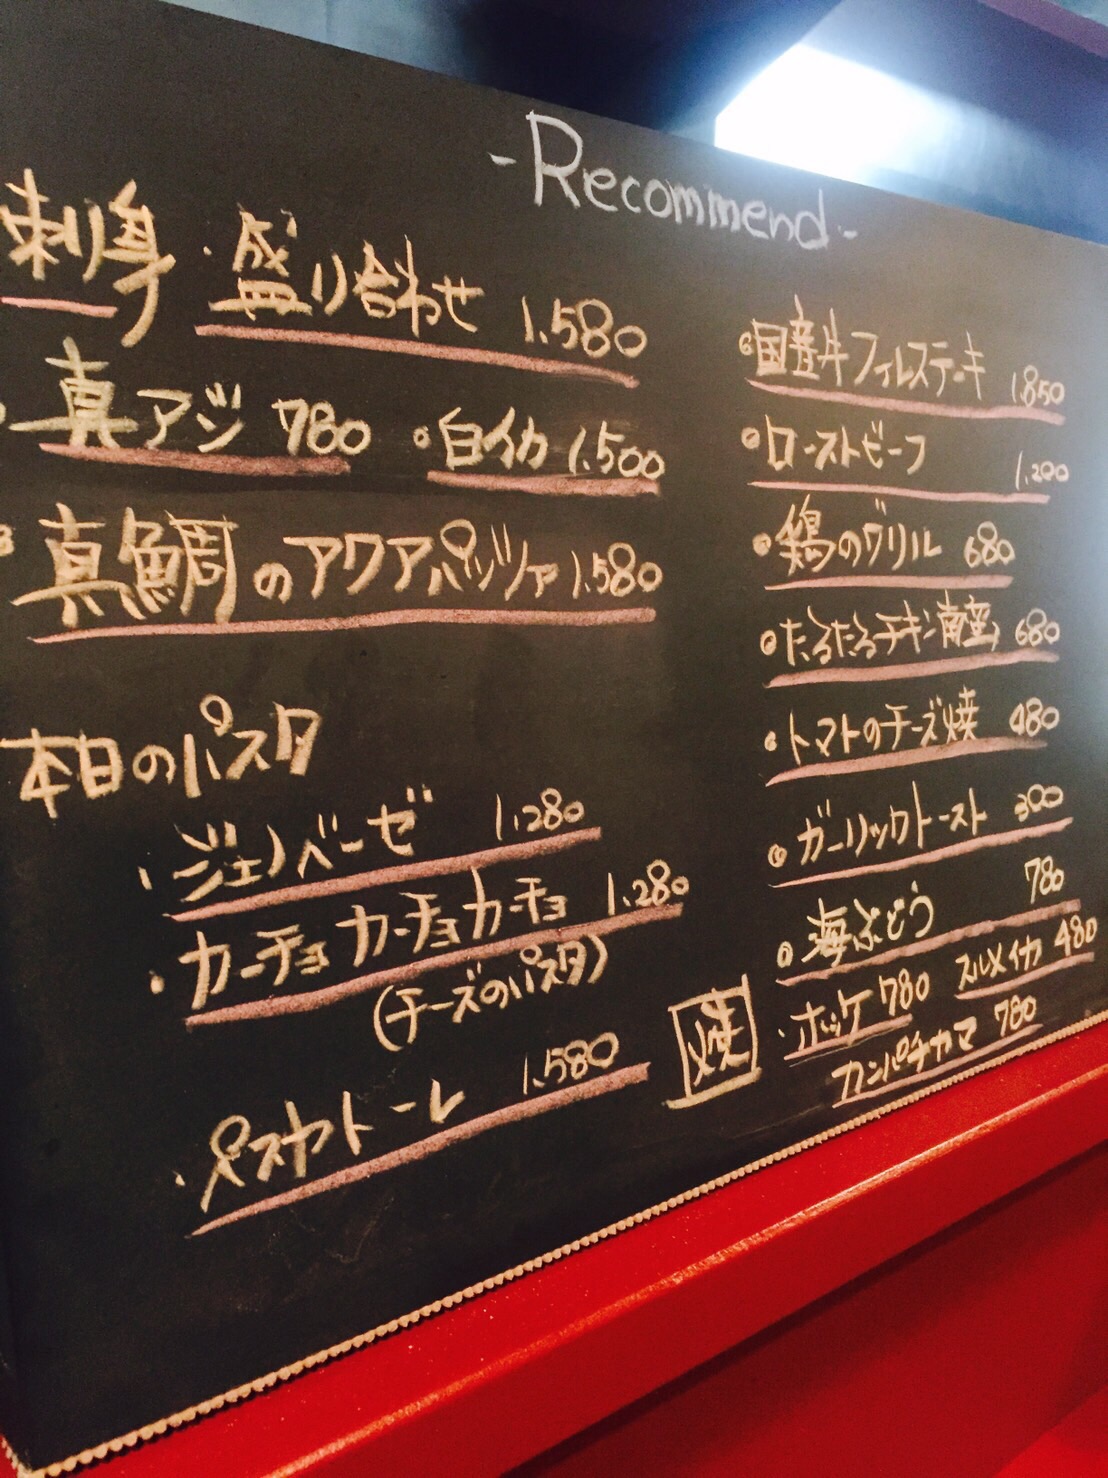 -Recommend-
刺身・盛り合わせ 1.580
真アジ 780 ・白イカ 1.500
真鯛のアクアパッツァ 1.580
本日のパスタ
・ジェノベーゼ 1.280
・カーチョカーチョカーチョ 1.280
(チーズのパスタ)
・ペスカトーレ 1.580
・国産牛フィレステーキ 1.850
・ローストビーフ 1.200
・鶏のグリル 680
・たるたるチキン南蛮 680
・トマトのチーズ焼 480
・ガーリックトースト 300
・海ぶどう 780
焼 ・ホッケ 780 スルメイカ 480
カンパチカマ 780